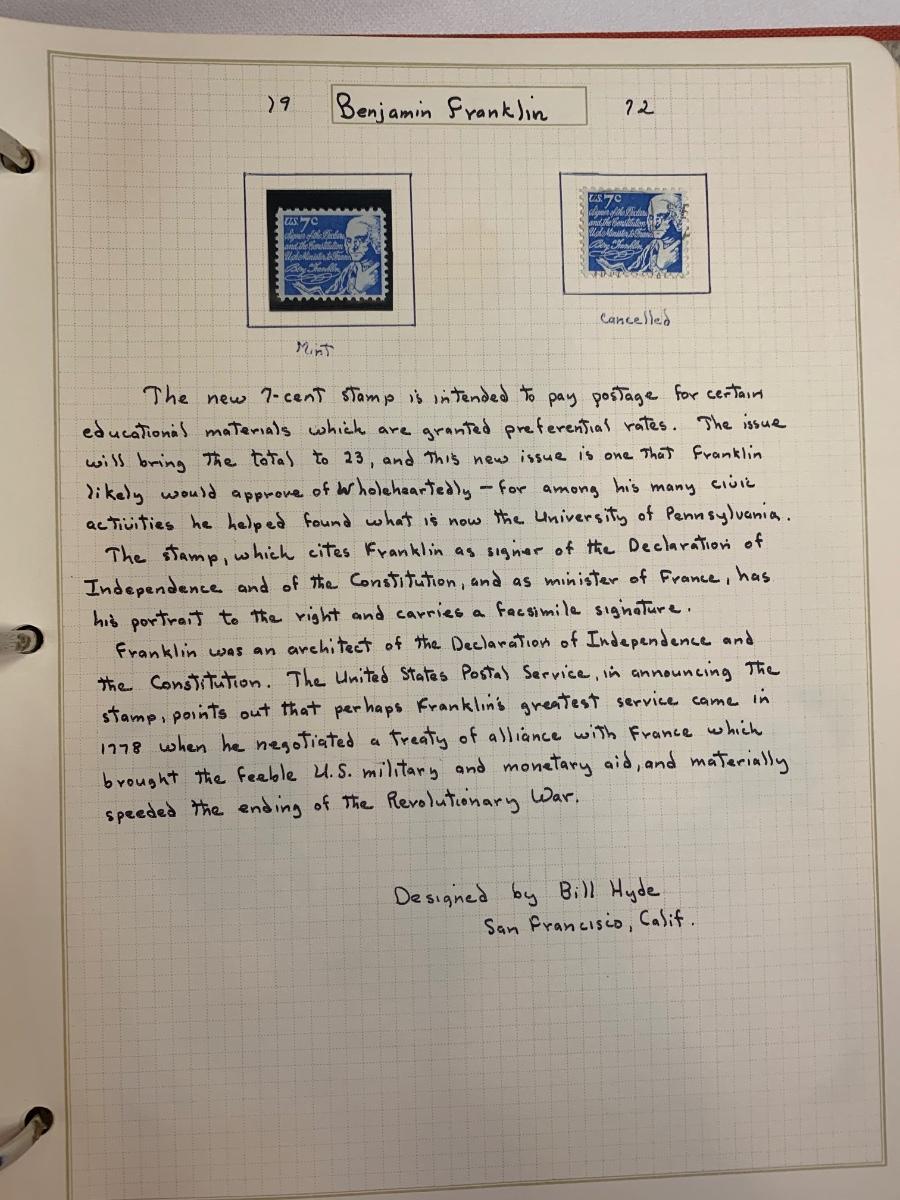 19 Benjamin Franklin 72
U.S. 7c
Signer of the Declara
and the Constitution
U.S. Minister to France
Benj Franklin
U.S. 7c
Signer of the Declara
and the Constitution
U.S. Minister to France
Benj Franklin
Mint
Cancelled
The new 7-cent stamp is intended to pay postage for certain
educational materials which are granted preferential rates. The issue
will bring the total to 23, and this new issue is one that Franklin
likely would approve of wholeheartedly - for among his many civic
activities he helped found what is now the University of Pennsylvania.
The stamp, which cites Franklin as signer of the Declaration of
Independence and of the Constitution, and as minister of France, has
his portrait to the right and carries a facsimile signature.
Franklin was an architect of the Declaration of Independence and
the Constitution. The United States Postal Service, in announcing the
stamp, points out that perhaps Franklin's greatest service came in
1778 when he negotiated a treaty of alliance with France which
brought the feeble U.S. military and monetary aid, and materially
speeded the ending of the Revolutionary War.
Designed by Bill Hyde
San Francisio, Calif.